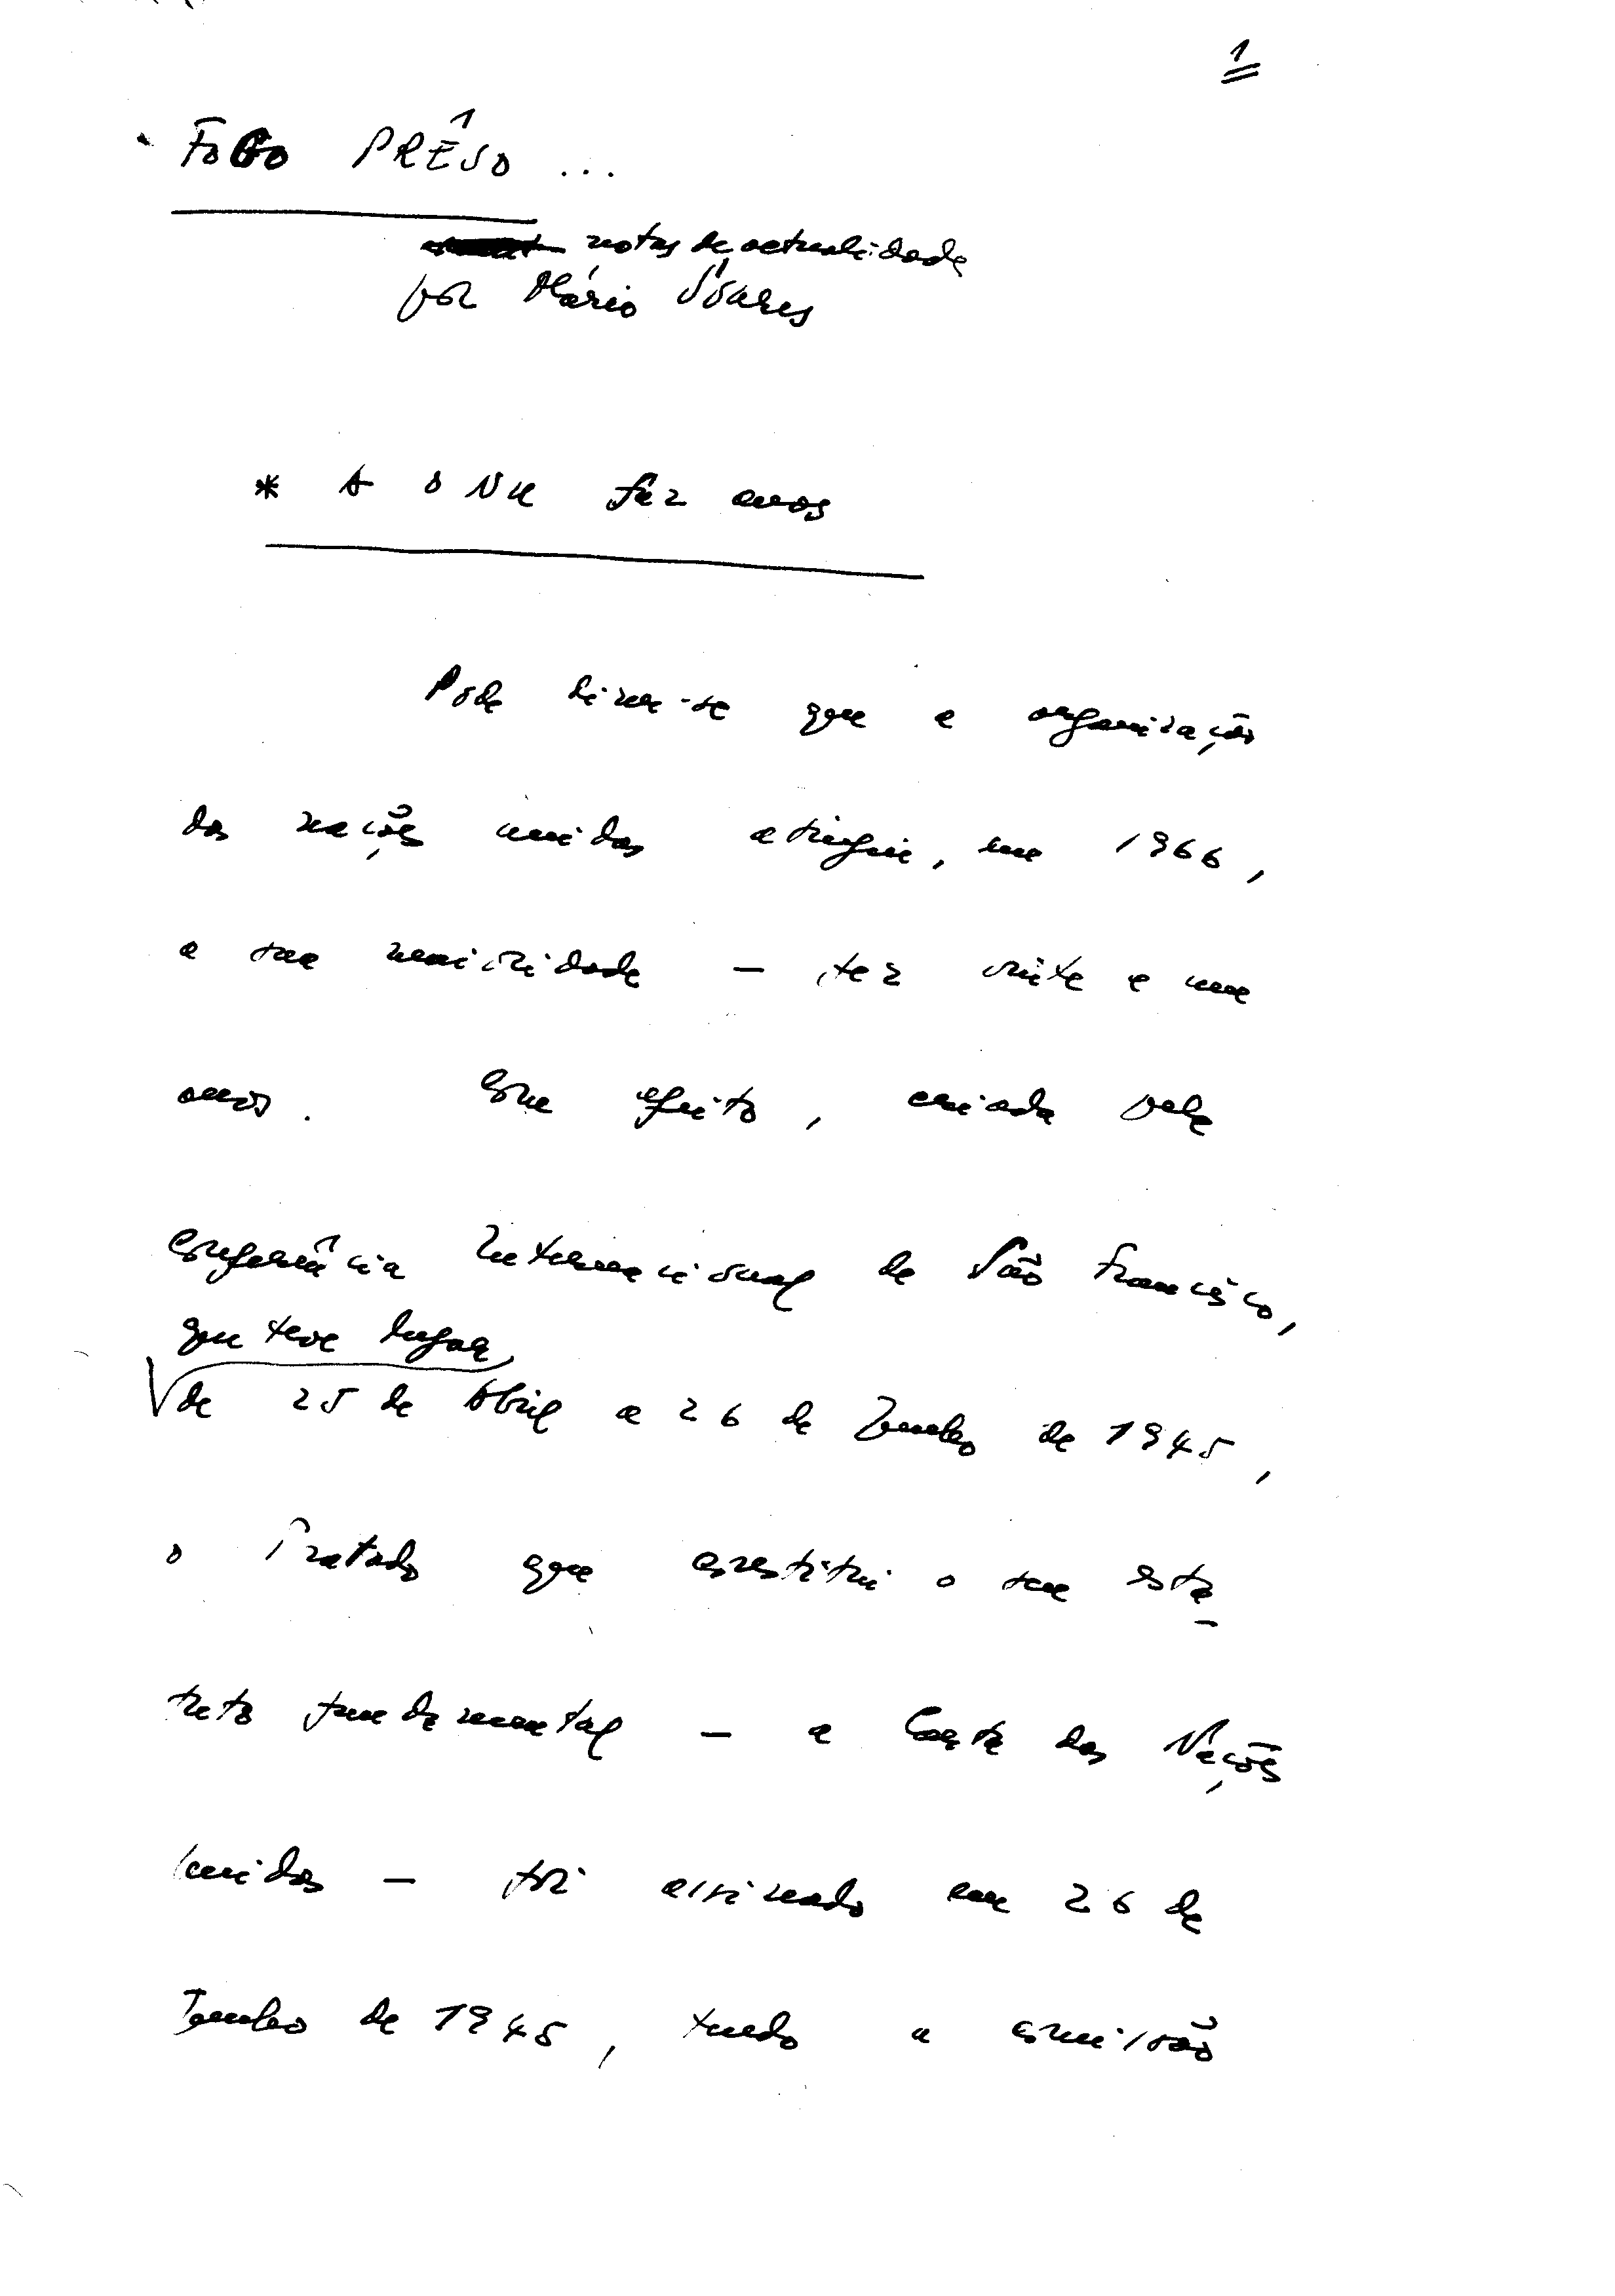 1
FOGO PRÊSO ...
notas de actualidade
por Mário Soares
* A ONU fez anos
Pode dizer-se que a organização
das nações unidas atingiu, em 1966,
a sua maioridade - fez vinte e um
anos. Com efeito, criada pela
Conferência Internacional de São Francisco,
que teve lugar
de 25 de Abril a 26 de Junho de 1945,
o Tratado que constitui o seu esta-
tuto fundamental - a Carta das Nações
Unidas - foi assinado em 26 de
Junho de 1945, tendo a comissão